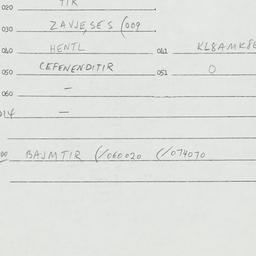 020 TIK
030 ZAVJESES (009
040 HENTL 041 KL8AMK8E
050 CEFENENDITIR 051 0
060 -
014 -
00 BAJMTIR (/060020 (/074070